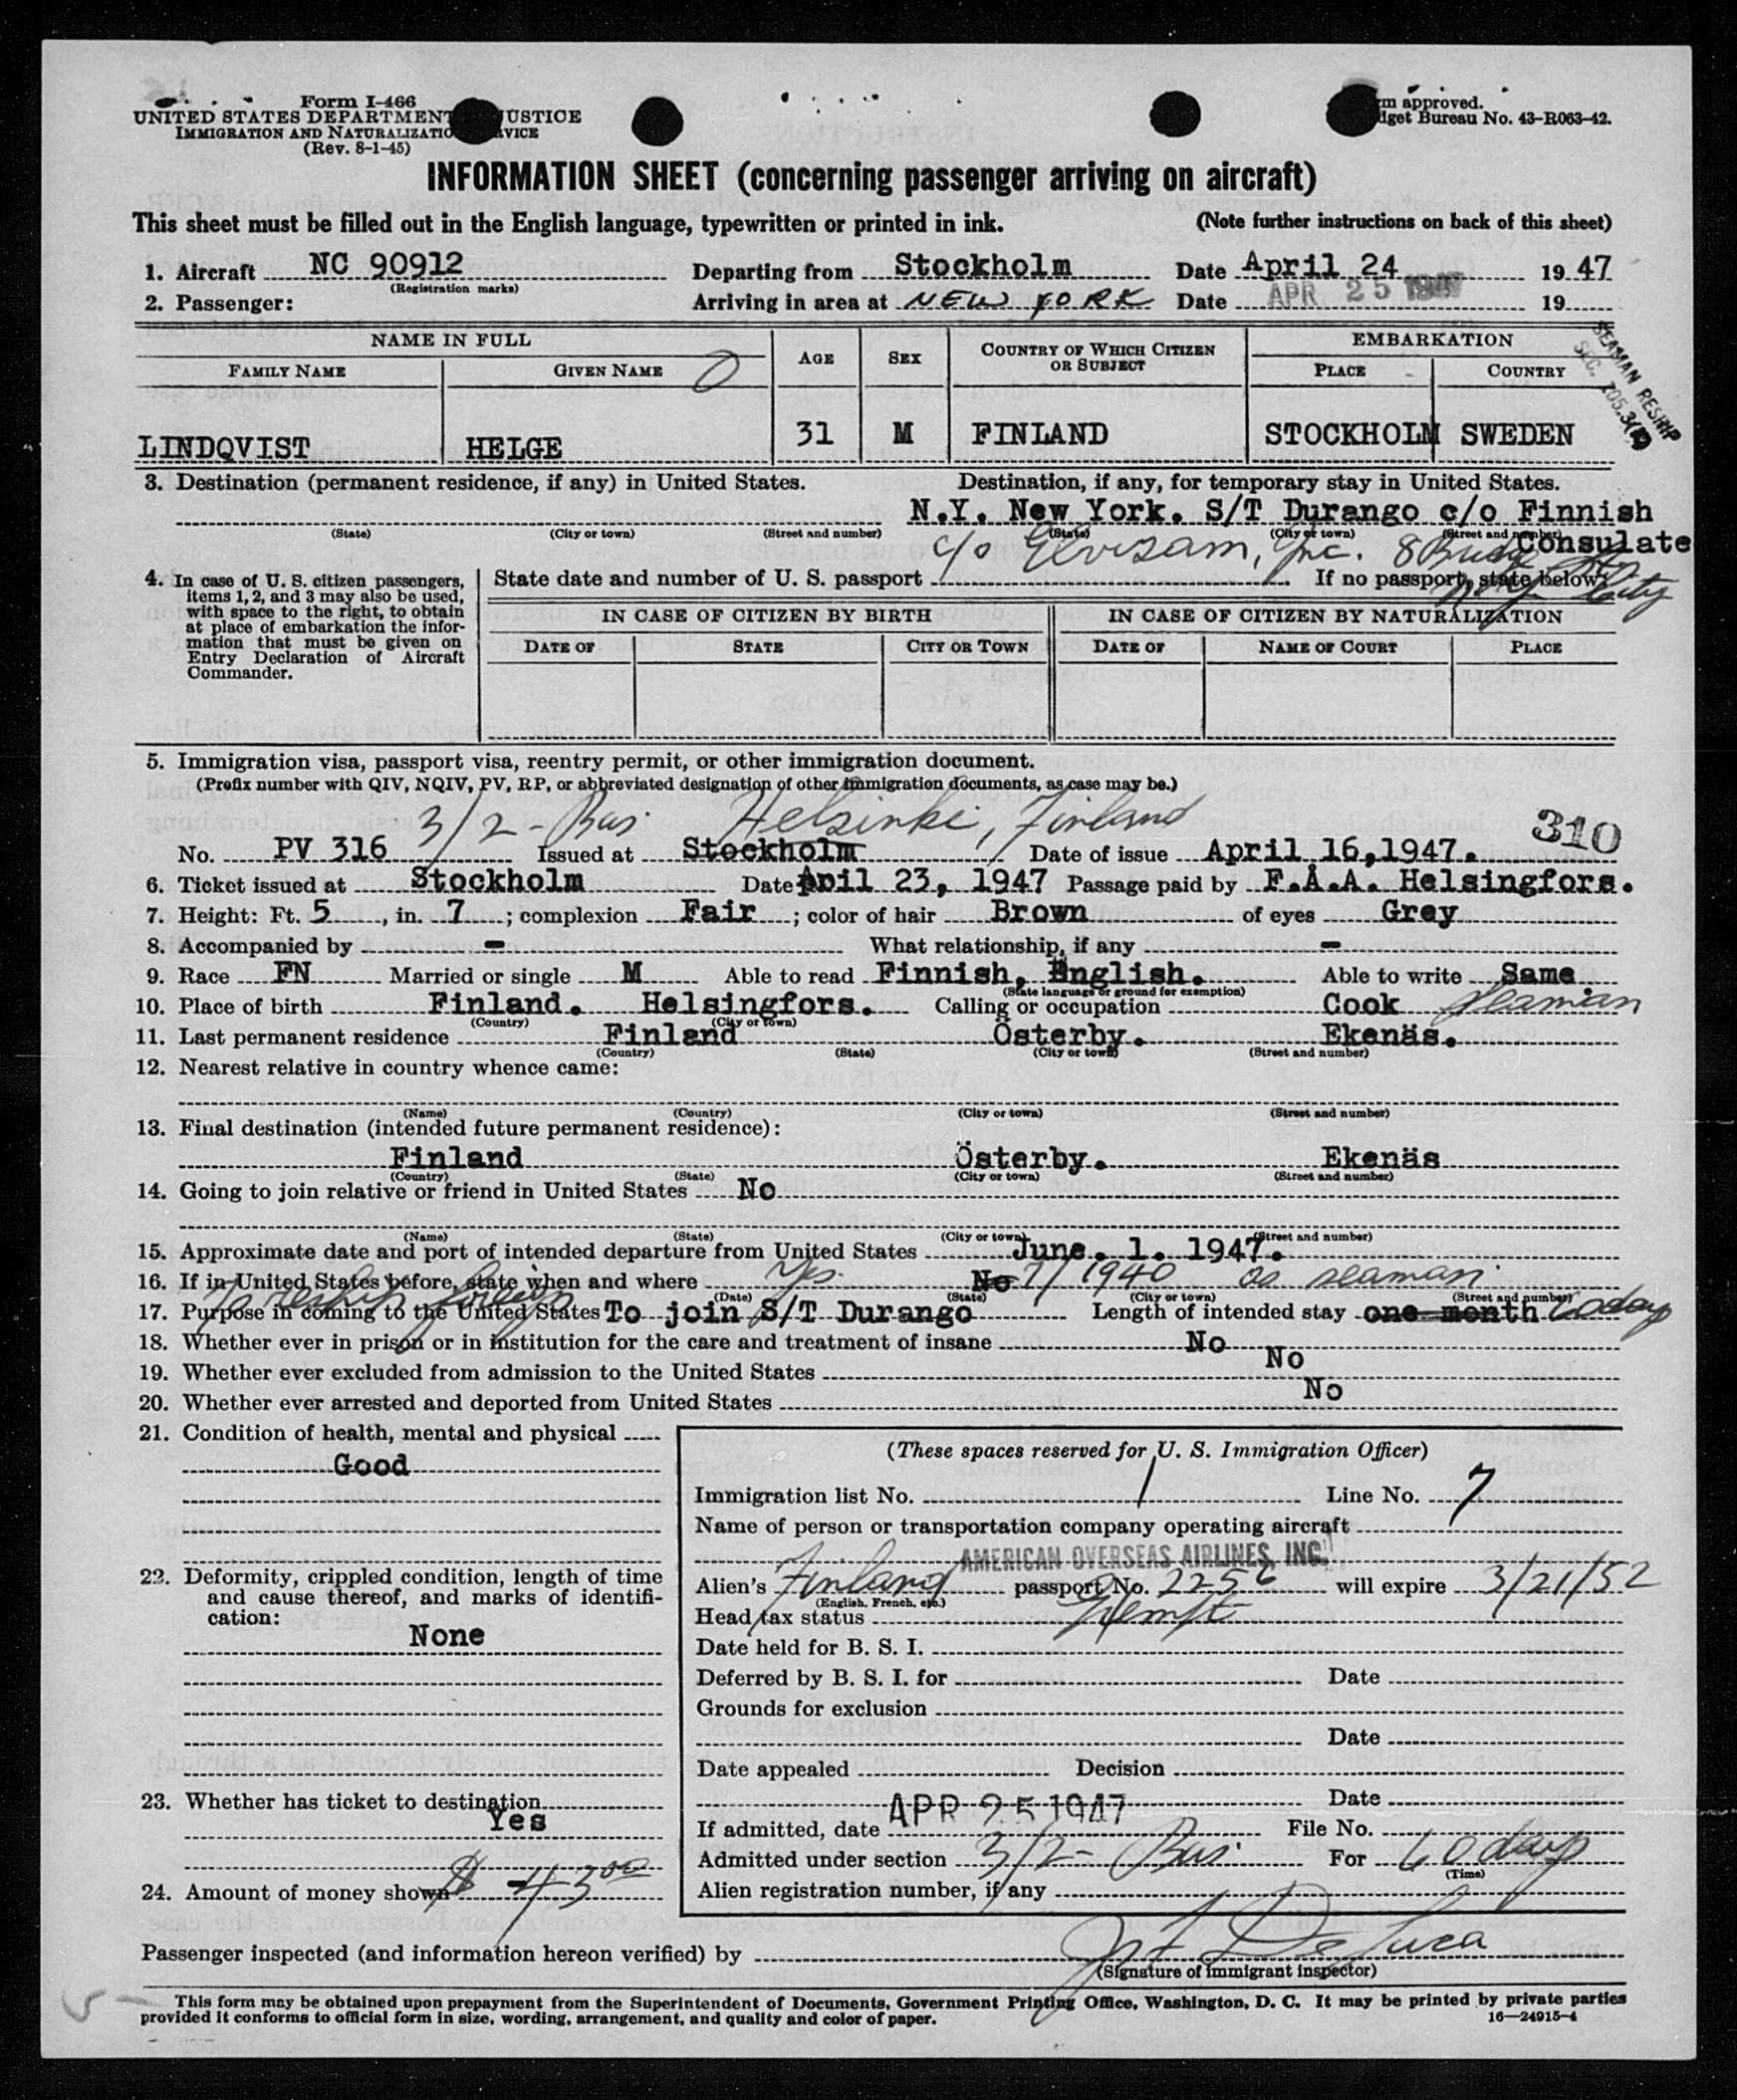 Form I-466
UNITED STATES DEPARTMENT JUSTICE
IMMIGRATION AND NATURALIZATIO VICE
(Rev. 8-1-45)
m approved.
dget Bureau No. 43-R063-42.
INFORMATION SHEET (concerning passenger arriving on aircraft)
This sheet must be filled out in the English language, typewritten or printed in ink. (Note further instructions on back of this sheet)
1. Aircraft NC 90912 Departing from Stockholm Date April 24 1947
(Registration marks)
2. Passenger: Arriving in area at NEW YORK Date APR 25 1947 19
NAME IN FULL AGE SEX COUNTRY OF WHICH CITIZEN OR SUBJECT EMBARKATION
FAMILY NAME GIVEN NAME PLACE COUNTRY
SEAMAN RESHIP
SEC.
LINDQVIST HELGE 31 M FINLAND STOCKHOLM SWEDEN
3. Destination (permanent residence, if any) in United States. Destination, if any, for temporary stay in United States.
N.Y. New York. S/T Durango c/o Finnish
(State) (City or town) (Street and number) (State) (City or town) (Street and number)
Consulate
c/o Inc. 8
City
4. In case of U. S. citizen passengers, items 1, 2, and 3 may also be used, with space to the right, to obtain at place of embarkation the information that must be given on Entry Declaration of Aircraft Commander.
State date and number of U. S. passport If no passport, state below:
IN CASE OF CITIZEN BY BIRTH IN CASE OF CITIZEN BY NATURALIZATION
DATE OF STATE CITY OR TOWN DATE OF NAME OF COURT PLACE
5. Immigration visa, passport visa, reentry permit, or other immigration document.
(Prefix number with QIV, NQIV, PV, RP, or abbreviated designation of other immigration documents, as case may be.)
3/2 - Bus Helsinki, Finland 310
No. PV 316 Issued at Stockholm Date of issue April 16,1947.
6. Ticket issued at Stockholm Date April 23, 1947 Passage paid by F.Å.A. Helsingfors.
7. Height: Ft. 5, in. 7; complexion Fair; color of hair Brown of eyes Grey
8. Accompanied by - What relationship, if any -
9. Race FN Married or single M Able to read Finnish, English. Able to write Same
(State language or ground for exemption)
10. Place of birth Finland. Helsingfors. Calling or occupation Cook Seaman
(Country) (City or town)
11. Last permanent residence Finland Österby. Ekenäs.
(Country) (State) (City or town) (Street and number)
12. Nearest relative in country whence came:
(Name) (Country) (City or town) (Street and number)
13. Final destination (intended future permanent residence):
Finland Österby. Ekenäs
(Country) (State) (City or town) (Street and number)
14. Going to join relative or friend in United States No
(Name) (State) (City or town) (Street and number)
15. Approximate date and port of intended departure from United States June. 1. 1947.
16. If in United States before, state when and where Yes No 7/1940 as seaman
(Date) (State) (City or town) (Street and number)
To reship foreign
17. Purpose in coming to the United States To join S/T Durango Length of intended stay one month 60 days
18. Whether ever in prison or in institution for the care and treatment of insane No
19. Whether ever excluded from admission to the United States No
20. Whether ever arrested and deported from United States No
21. Condition of health, mental and physical
Good
22. Deformity, crippled condition, length of time and cause thereof, and marks of identification:
None
23. Whether has ticket to destination
Yes
24. Amount of money shown $ 43.00
(These spaces reserved for U. S. Immigration Officer)
Immigration list No. 1 Line No. 7
Name of person or transportation company operating aircraft
AMERICAN OVERSEAS AIRLINES, INC.
Alien's Finland passport No. 2256 will expire 3/21/52
(English, French, etc.)
Head tax status Exempt
Date held for B. S. I.
Deferred by B. S. I. for Date
Grounds for exclusion
Date
Date appealed Decision
Date
If admitted, date APR 25 1947 File No.
Admitted under section 3/2- Bus. For 60 days
(Time)
Alien registration number, if any
Passenger inspected (and information hereon verified) by De Luca
(Signature of immigrant inspector)
This form may be obtained upon prepayment from the Superintendent of Documents, Government Printing Office, Washington, D. C. It may be printed by private parties
provided it conforms to official form in size, wording, arrangement, and quality and color of paper.
16—24915-4